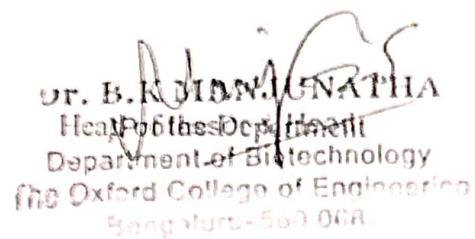 Dr. B.K MANJUNATHA
Head of the Department
Professor & Head
Department of Biotechnology
The Oxford College of Engineering
Bengaluru- 560 068.